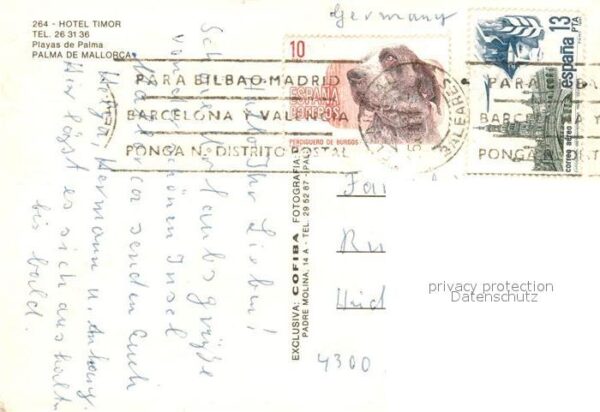 264 - HOTEL TIMOR
TEL. 26 31 36
Playas de Palma
PALMA DE MALLORCA
Germany
10
ESPAÑA
CORREOS
PERDIGUERO DE BURGOS
13
PTA
españa
correo aéreo
PARA BILBAO-MADRID
BARCELONA Y VALENCIA
PONGA Nº DISTRITO POSTAL
BALEARES
PARA
BARCELONA
PONGA Nº
Hallo Ihr Lieben!
Schnell Urlaubsgrüße
von der schönen Insel
Mallorca senden Euch
Helga, Hermann u. Anhang.
Hier lässt es sich aushalten
bis bald.
EXCLUSIVA: COFIBA FOTOGRAFIA
PADRE MOLINA, 14 A - TEL. 29 52 87 (PALMA
Fa
Hid
4300
privacy protection
Datenschutz